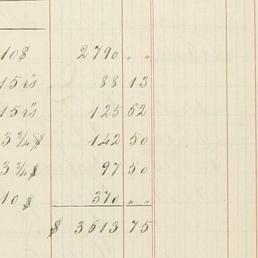 10$ 2790 " "
15 cts 88 13
15 cts 125 62
3 3/4 $ 142 50
3 3/4 $ 97 50
10 $ 370 " "
$ 3613 75